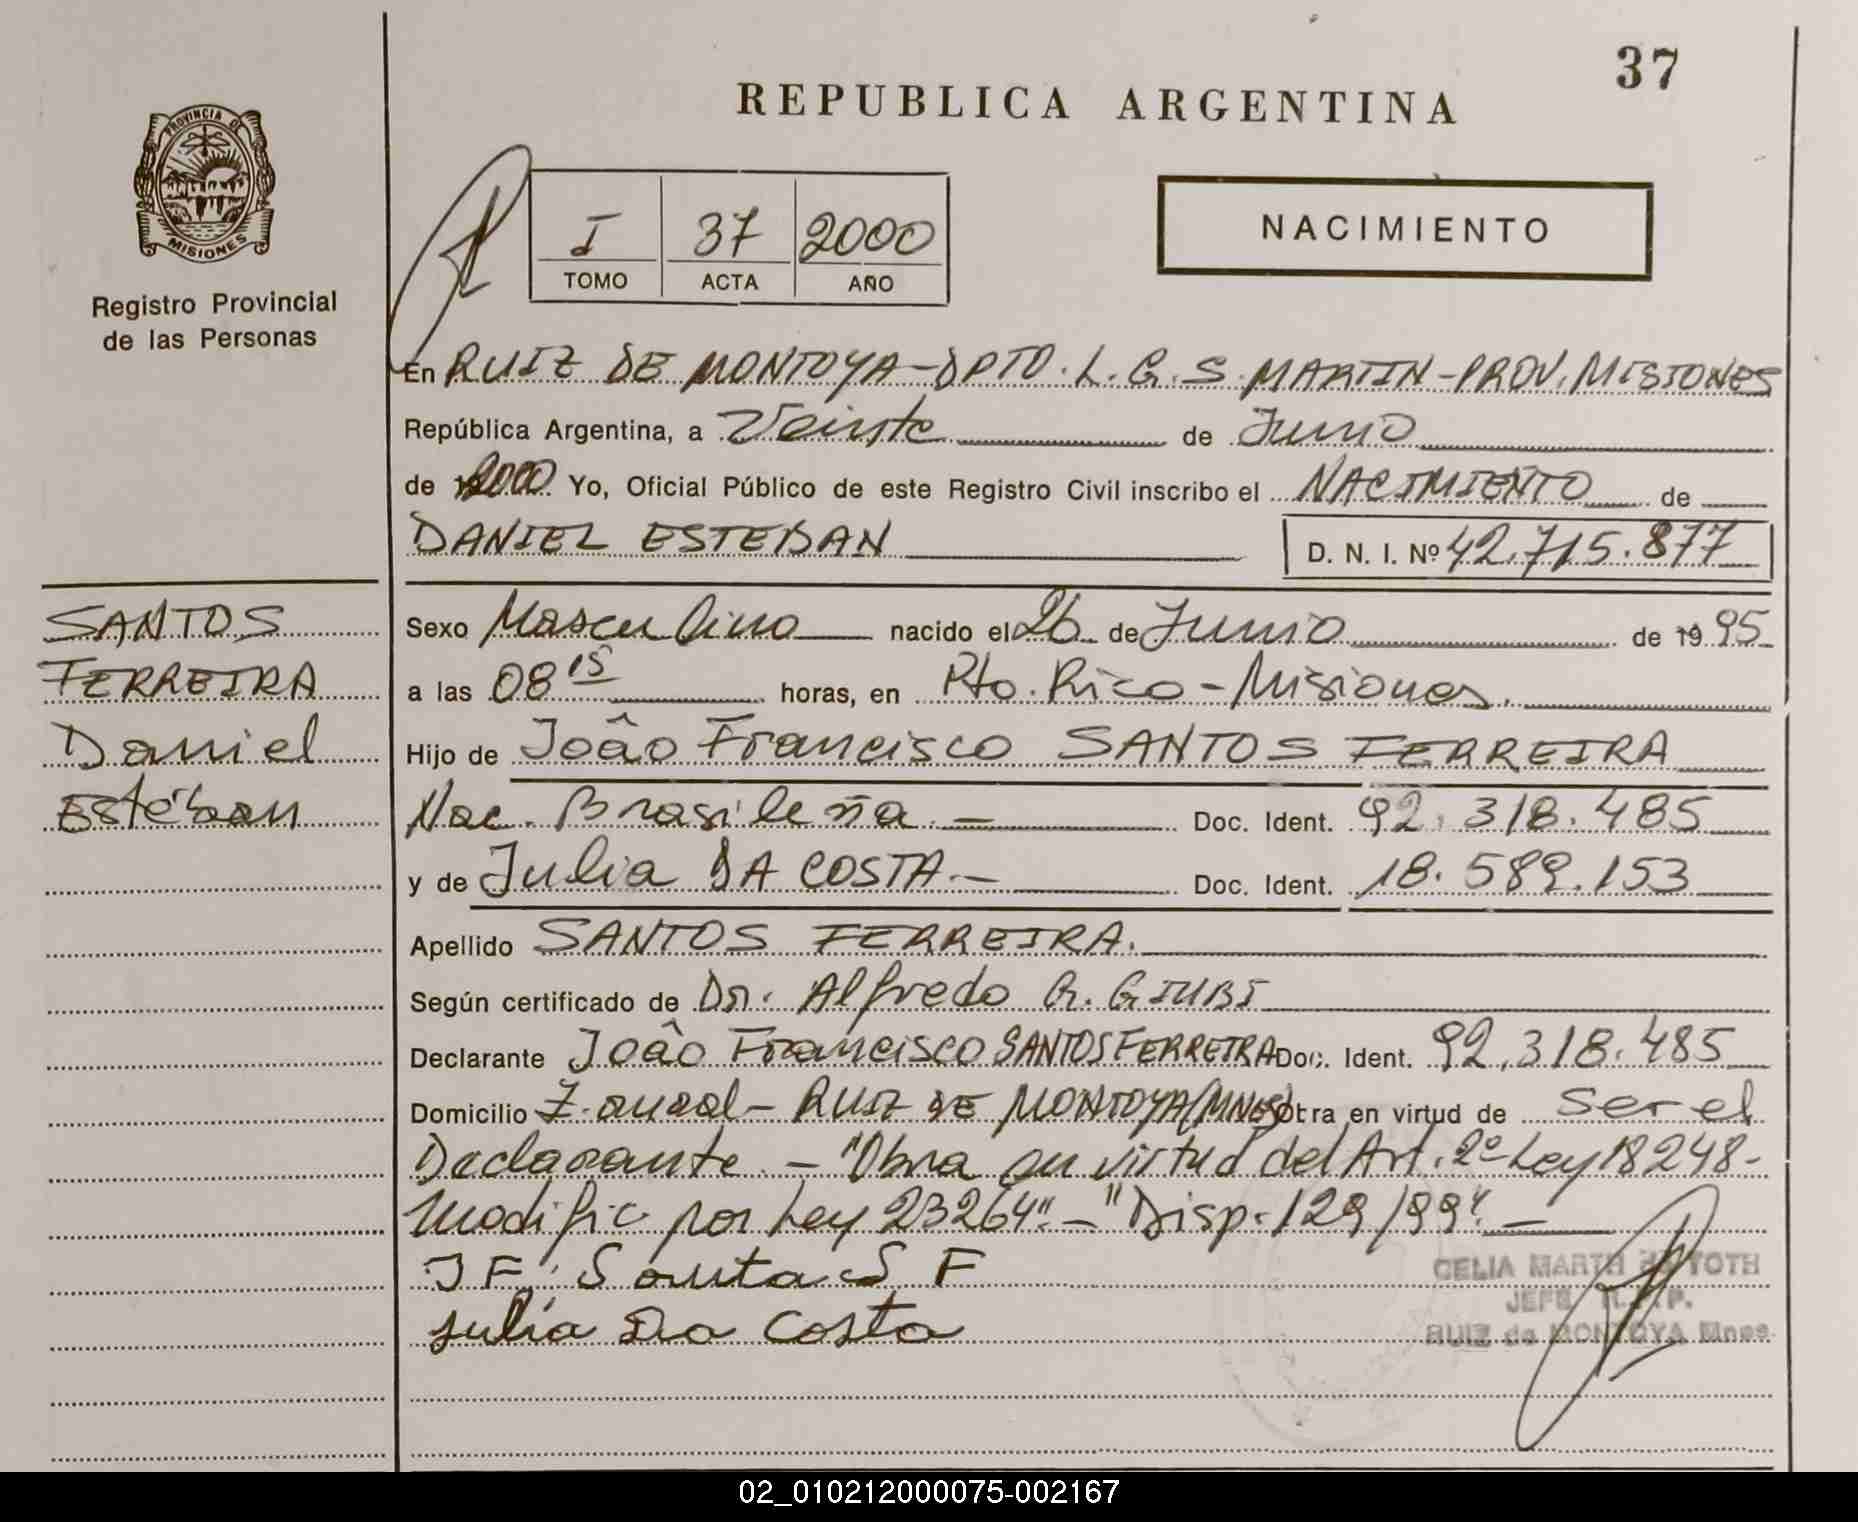 37
REPUBLICA ARGENTINA
PROVINCIA DE
MISIONES
Registro Provincial
de las Personas
I 37 2000
TOMO ACTA AÑO
NACIMIENTO
En RUIZ DE MONTOYA-DPTO. L. G. S. MARTIN-PROV. MISIONES
República Argentina, a Veinte de Junio
de 2000 Yo, Oficial Público de este Registro Civil inscribo el NACIMIENTO de
DANIEL ESTEBAN D. N. I. Nº 42.715.877
SANTOS
FERREIRA
Daniel
Estéban
Sexo Masculino nacido el 26 de Junio de 19 95
a las 08 15 horas, en Pto. Rico - Misiones.
Hijo de Joâo Francisco SANTOS FERREIRA
Nac. Brasileña.- Doc. Ident. 92.318.485
y de Julia DA COSTA.- Doc. Ident. 18.589.153
Apellido SANTOS FERREIRA.
Según certificado de Dr. Alfredo R. GIUBI
Declarante Joâo Francisco SANTOS FERREIRA Doc. Ident. 92.318.485
Domicilio Z. rural - RUIZ DE MONTOYA (MNES) Obra en virtud de Ser el
Declarante.- "Obra en virtud del Art. 2º Ley 18248-
Modific. por Ley 23264".- "Disp. 129/99".-
J F. Santa S F
Julia Da Costa
CELIA MARTH de TOTH
JEFE R.P.P.
RUIZ de MONTOYA Mnes
02_010212000075-002167